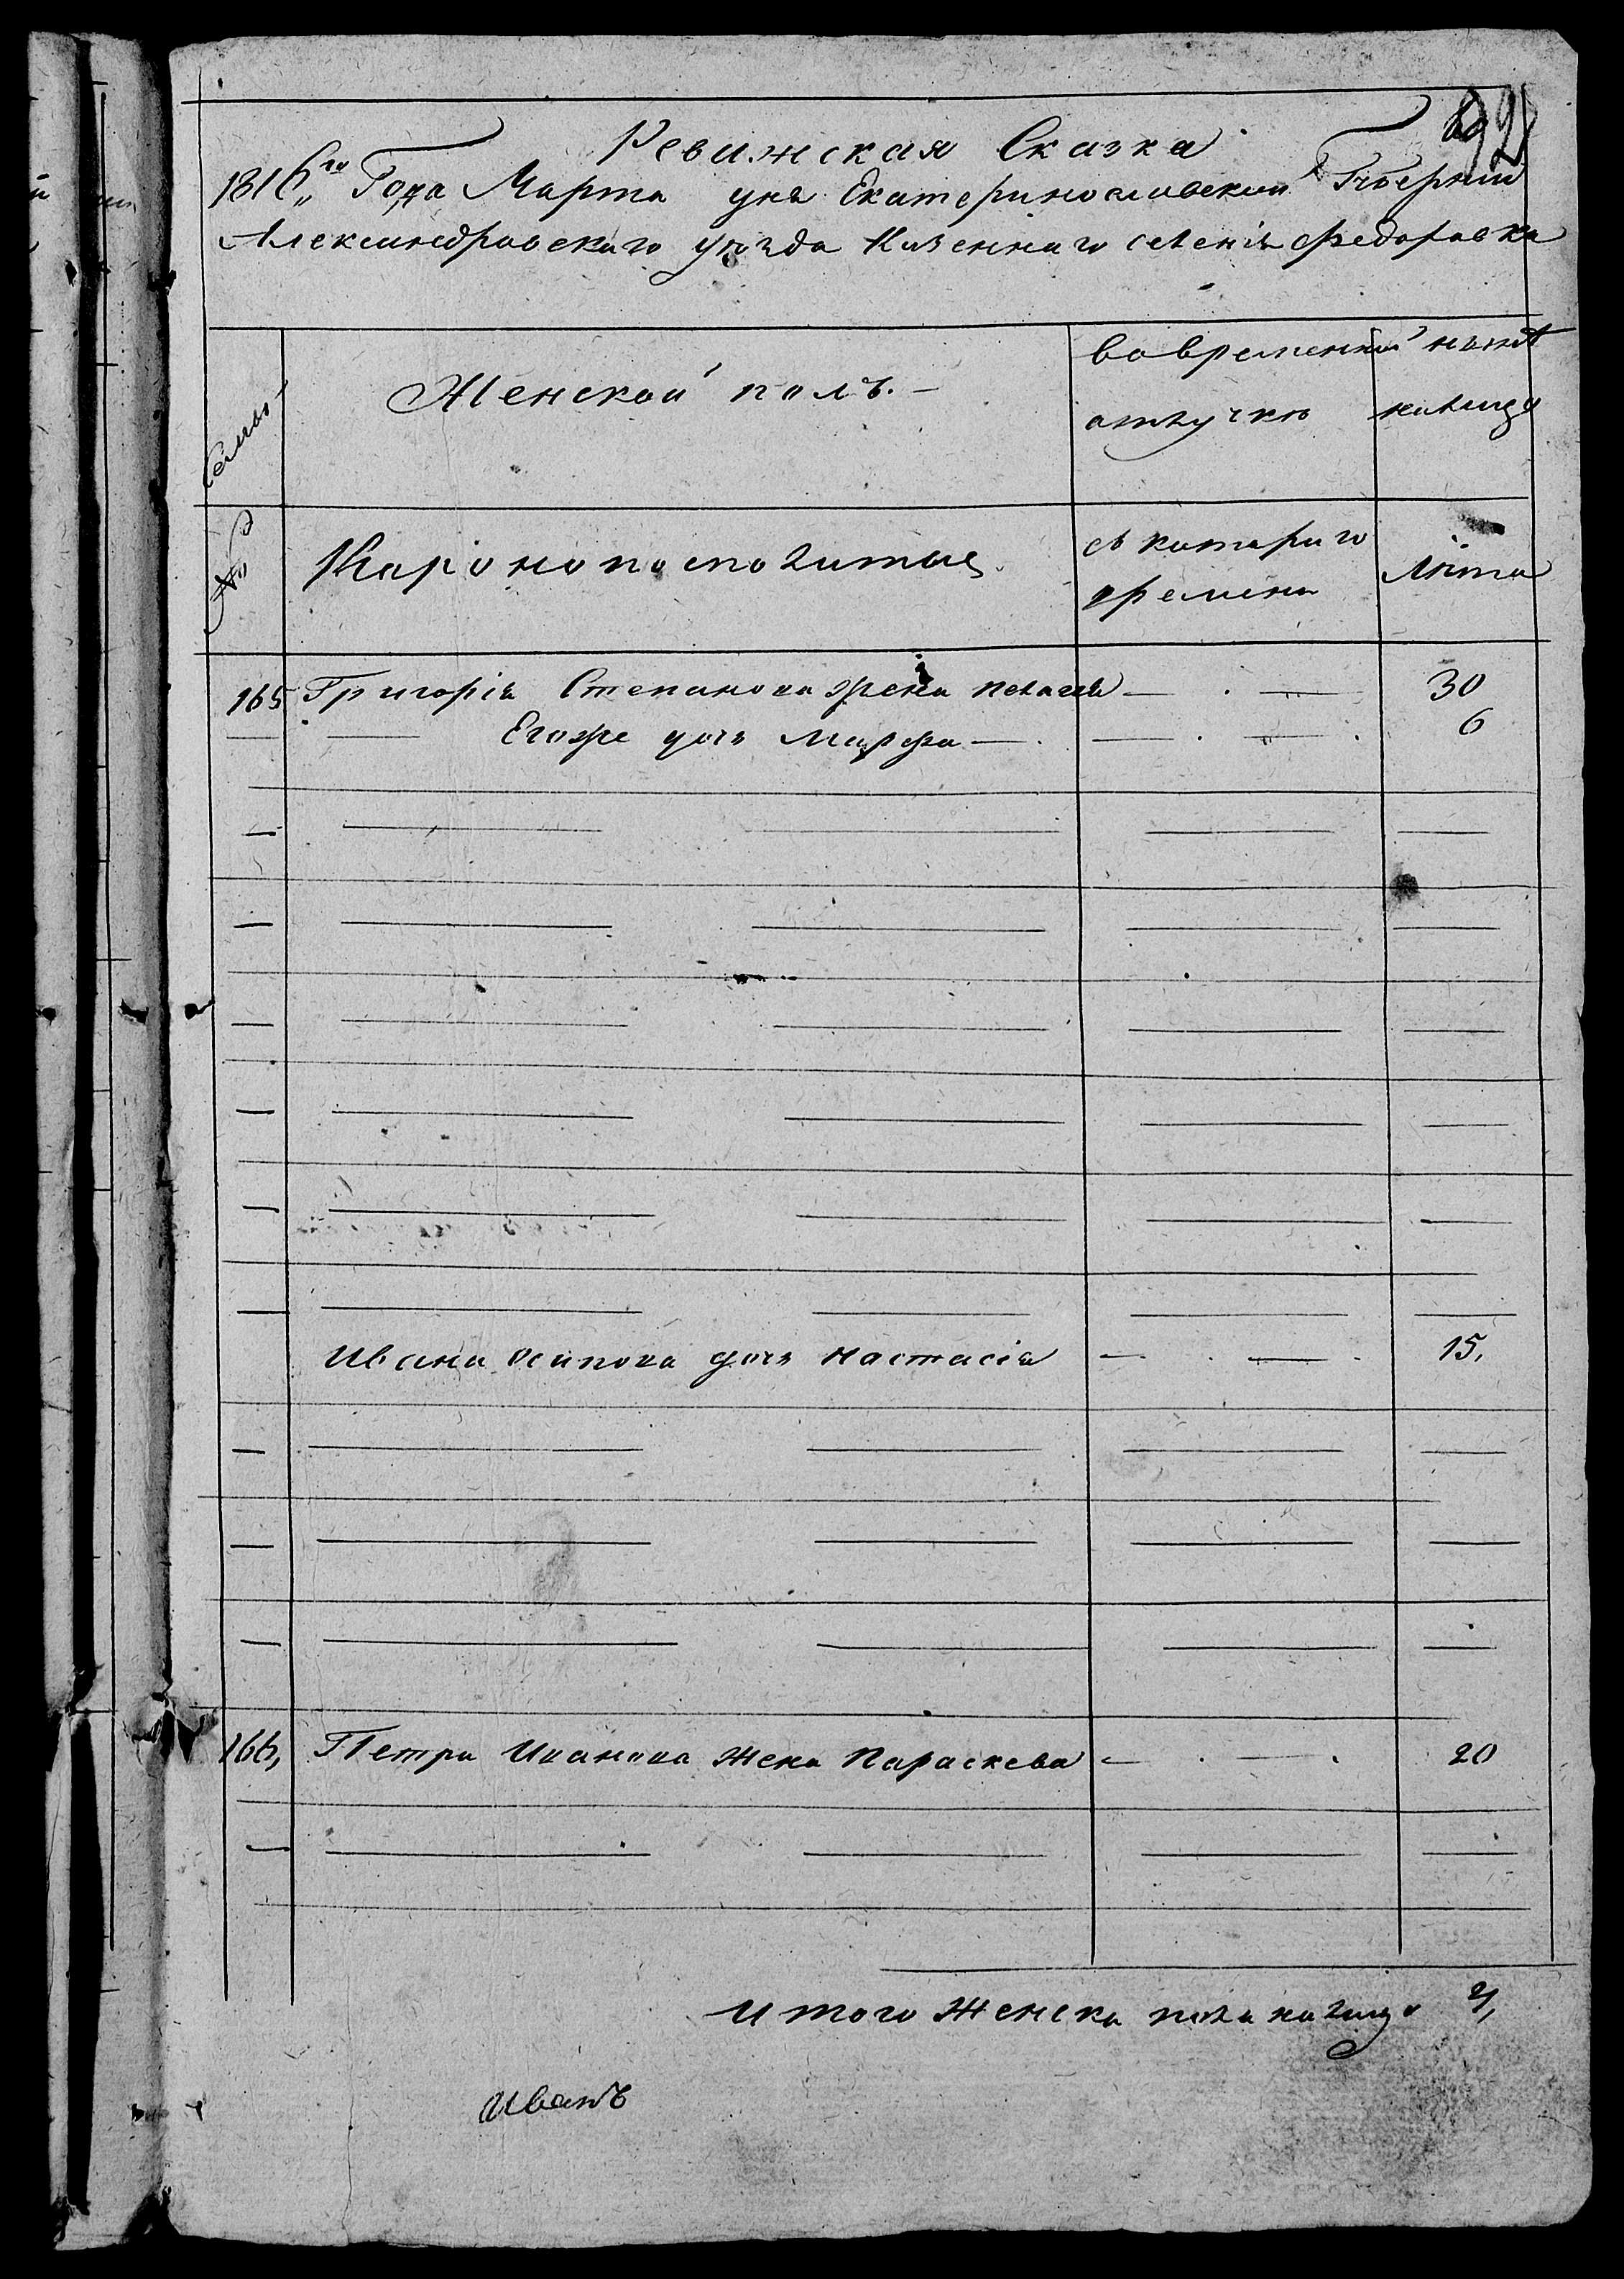 92
Ревижская Сказка
1816го Года Марта дня Екатеринославской Губернии
Александровскаго уезда Казеннаго селения Федоровка
Женской полъ.
вовременной ныне
отлучке налицо
Семьи
№
Короно посполитые
съ котораго Лета
времени
165 Григорія Степанова жена Пелагея — 30
Егоже дочь Марфа — 6
Ивана Осипова дочь Настасія — 15,
166, Петра Иванова Жена Параскева — 20
Итого Женска пола налицо 4,
Иванъ